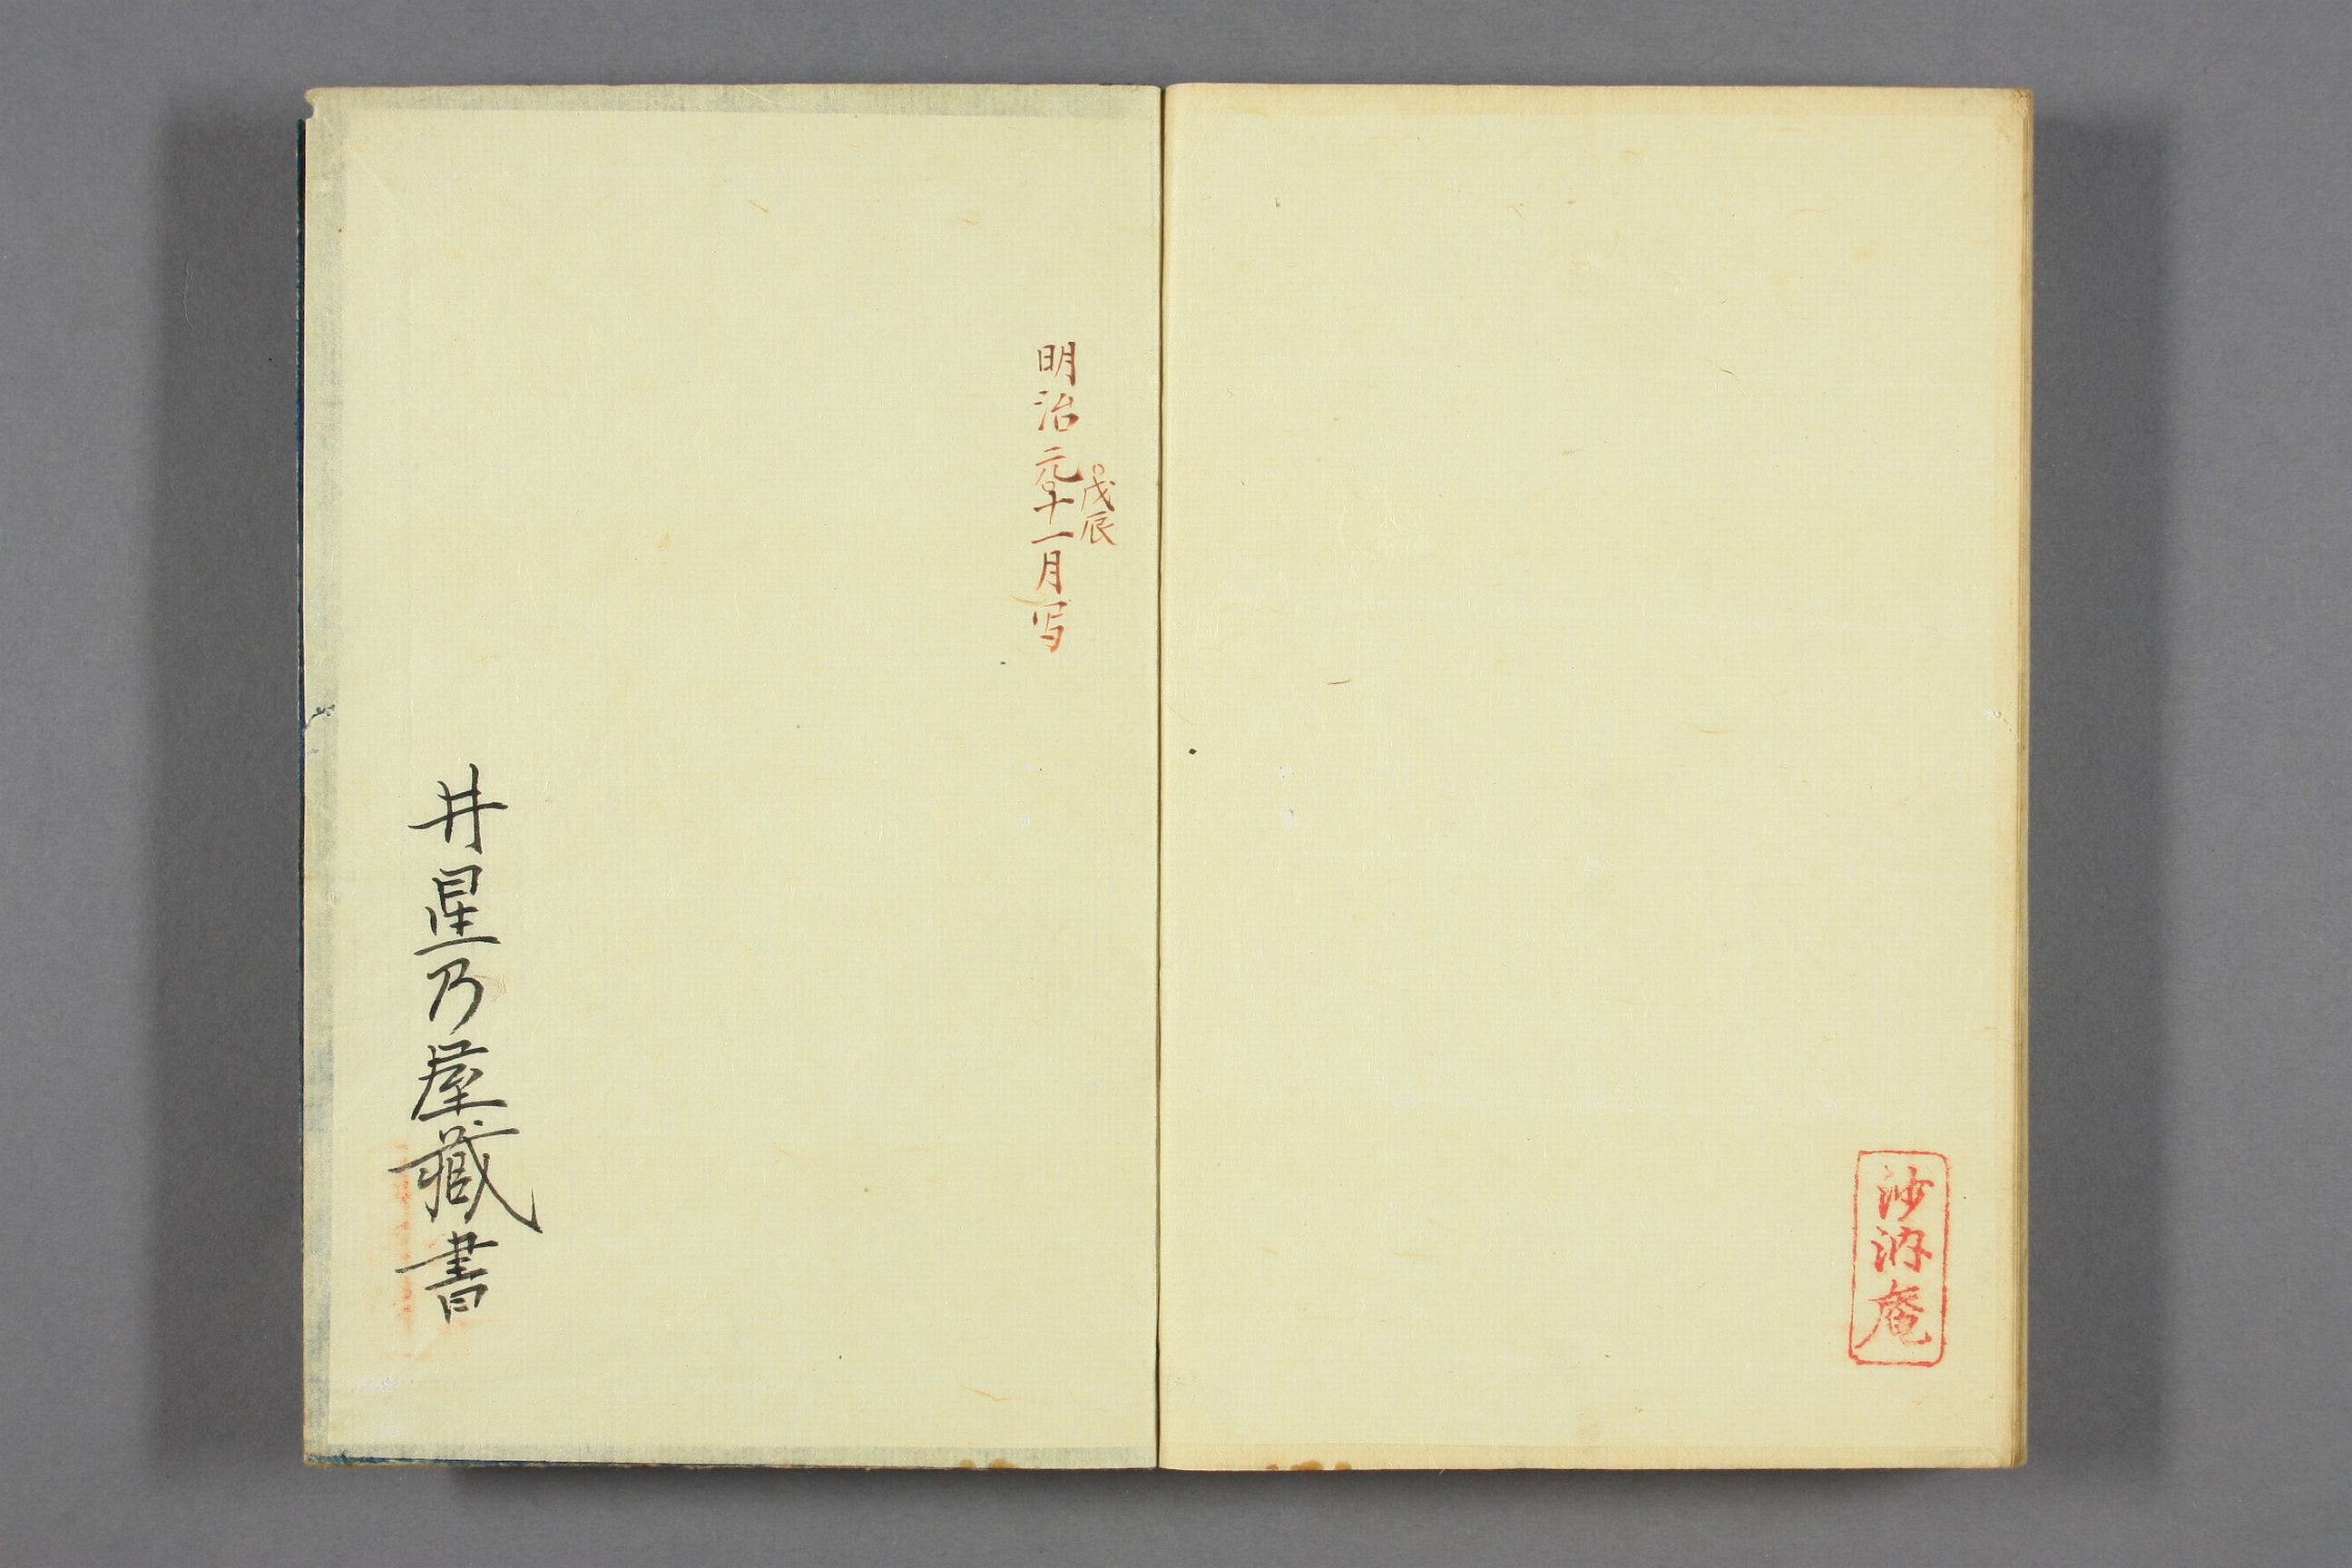 沙庵
戊辰
明治元十一月写
井星乃屋藏書